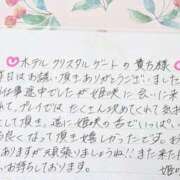 ♡ホテルクリスタルゲートの貴方様♡
昨日はお誘い頂きありがとうございました
お仕事途中でしたが姫咲に会いに来
れて、プレイではたくさん攻めてくれて気持
して、逆に姫咲の舌でいっぱい
良くなって頂き嬉しかったです。お
ありますが頑張りましょうね!!また来た
お待ちしております。
姫咲